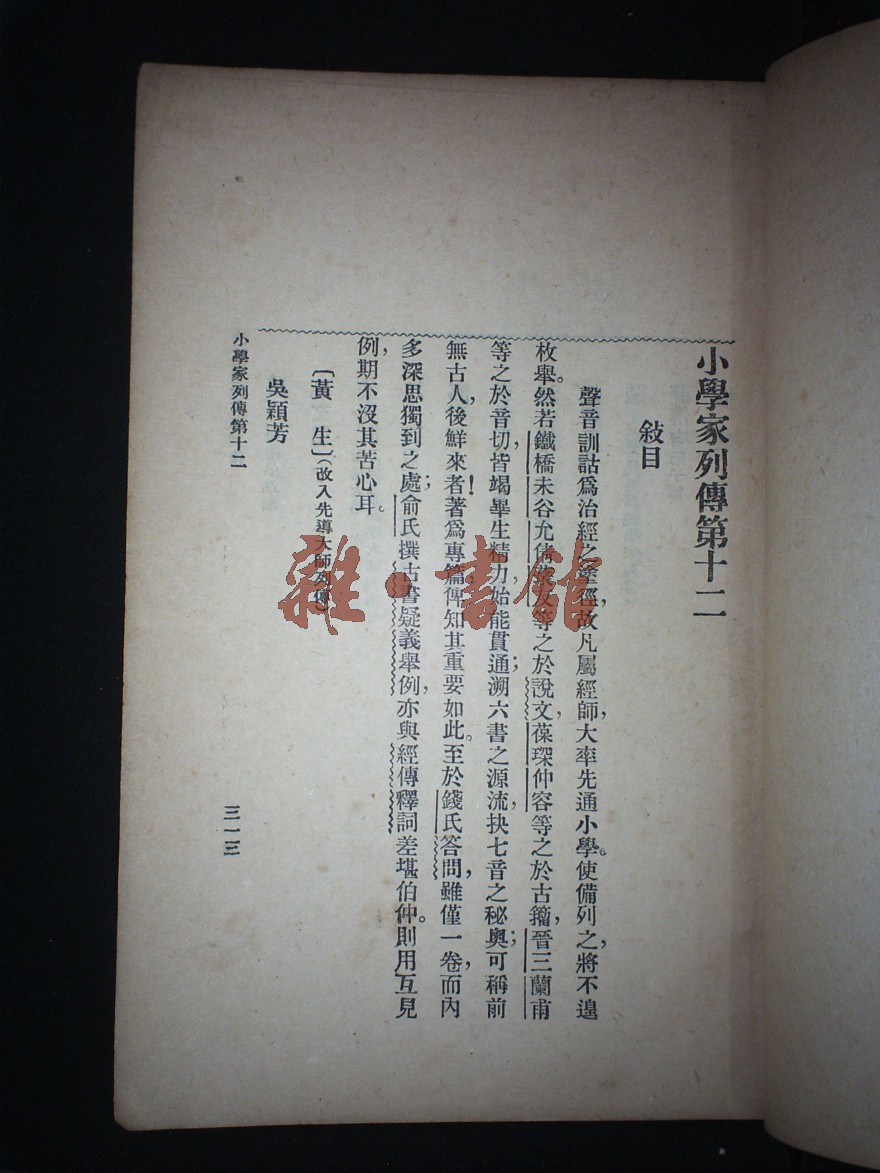 小學家列傳第十二
敍目
聲音訓詁爲治經之塗徑，故凡屬經師，大率先通小學。使備列之，將不遑
枚舉。然若鐵橋未谷允倩菉友等之於說文，葆琛仲容等之於古籀，晉三蘭甫
等之於音切，皆竭畢生精力，始能貫通；溯六書之源流，抉七音之秘奧；可稱前
無古人，後鮮來者！著爲專篇，俾知其重要如此。至於錢氏答問，雖僅一卷，而內
多深思獨到之處；俞氏撰古書疑義舉例，亦與經傳釋詞差堪伯仲。則用互見
例，期不沒其苦心耳。
〔黃　生〕（改入先導大師列傳）
吳穎芳
小學家列傳第十二
三一三
雜·書館